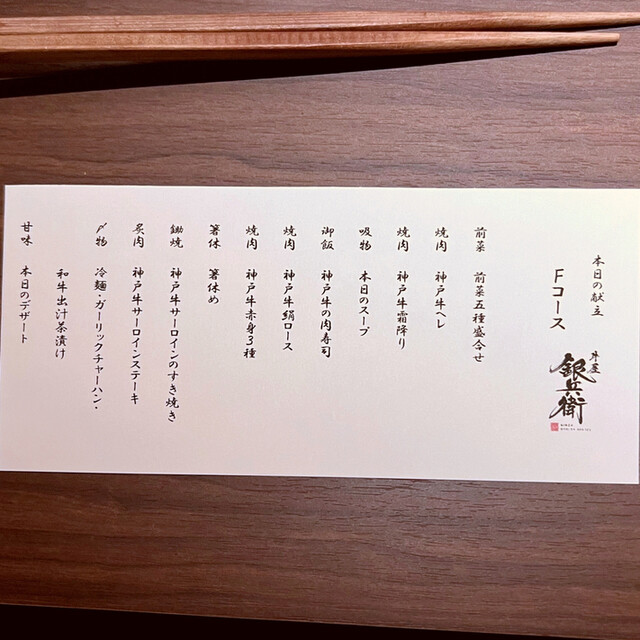 本日の献立
Fコース
牛屋
銀兵衛
前菜 前菜五種盛合せ
焼肉 神戸牛ヘレ
焼肉 神戸牛霜降り
吸物 本日のスープ
御飯 神戸牛の肉寿司
焼肉 神戸牛絹ロース
焼肉 神戸牛赤身3種
箸休 箸休め
鋤焼 神戸牛サーロインのすき焼き
炙肉 神戸牛サーロインステーキ
〆物 冷麺・ガーリックチャーハン・
和牛出汁茶漬け
甘味 本日のデザート